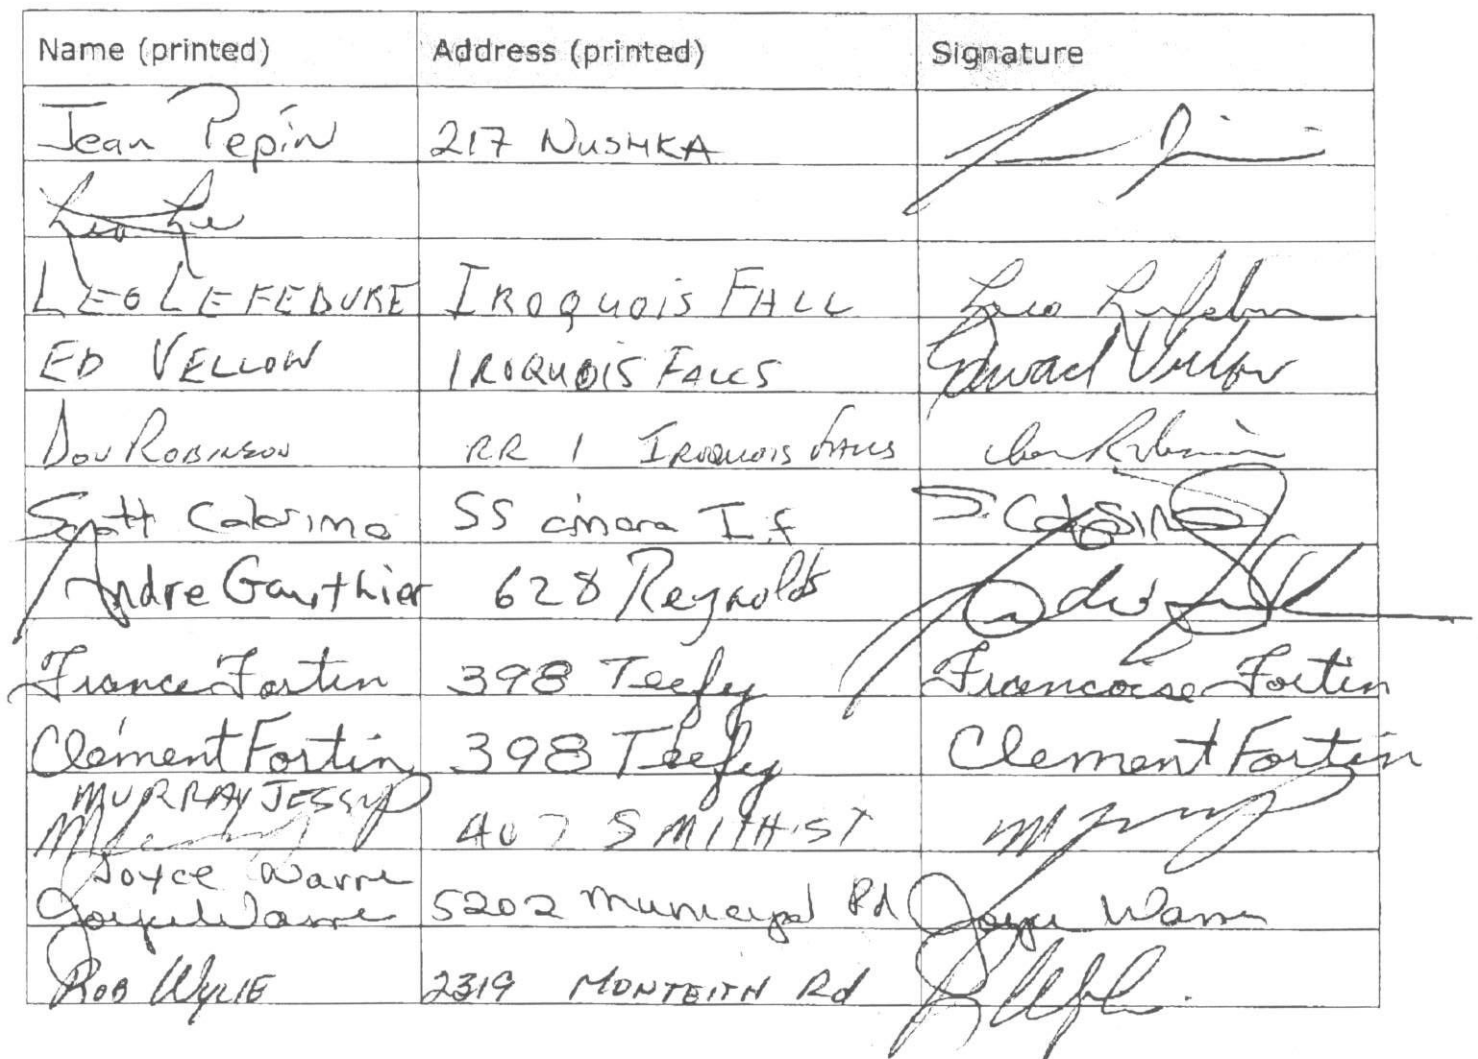 Name (printed) Address (printed) Signature
Jean Pepin 217 NUSHKA
Leo Le
LEO LEFEBVRE IROQUOIS FALL Leo Lefebvre
ED VELLOW IROQUOIS FALLS Edward Vellow
DON ROBINSON RR 1 IROQUOIS FALLS Don Robinson
Scott Calosimo SS I.F S. CALOSIMO
Andre Gauthier 628 Reynolds
France Fortin 398 Teefy Francoise Fortin
Clément Fortin 398 Teefy Clement Fortin
MURRAY JESSUP
407 SMITH ST
Joyce Warre
Joyce Warre 5202 Municipal Rd Joyce Warre
ROB WYLIE 2319 MONTEITH Rd